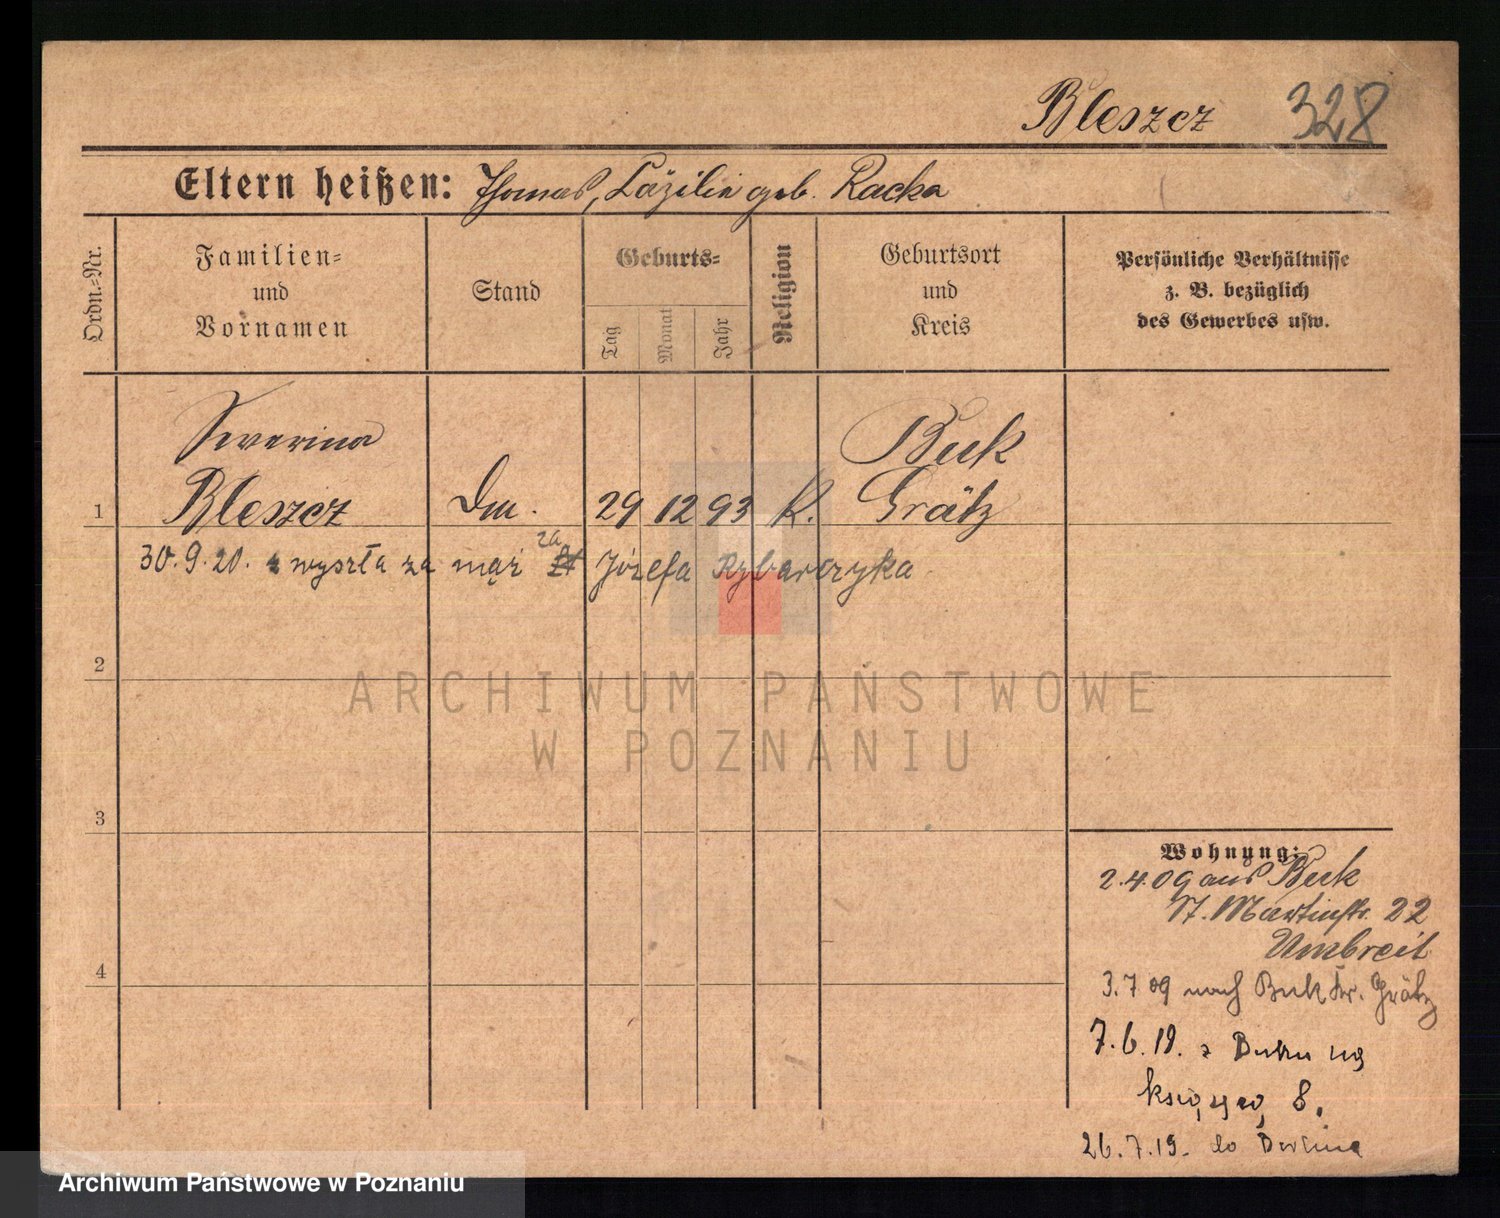 Bleszcz 328
Eltern heißen: Thomas, Cäzilie geb. Racka
Ordn.=Nr.
Familien=
und
Vornamen
Stand
Geburts=
Tag
Monat
Jahr
Religion
Geburtsort
und
Kreis
Persönliche Verhältnisse
z. B. bezüglich
des Gewerbes usw.
Severina Buk
1 Bleszcz Dm. 29 12 93 K. Grätz
za
30.9.20. wyszła za mąż Józefa Rybarczyka
2
ARCHIWUM PAŃSTWOWE
W POZNANIU
3
Wohnung:
2.4.09 aus Buk
St. Martinstr. 22
Umbreit
4
3.7 09 nach Buk Kr. Grätz
7.6.19. z Buku na
8.
26.7.19. do Berlina
Archiwum Państwowe w Poznaniu